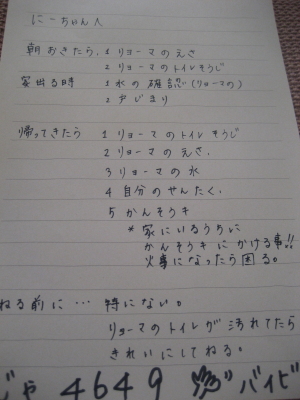 にーちゃん人
朝おきたら、1 リョーマのえさ
2 リョーマのトイレそうじ
家出る時 1 水の確認(リョーマの)
2 戸じまり
帰ってきたら 1 リョーマのトイレそうじ
2 リョーマのえさ、
3 リョーマの水
4 自分のせんたく、
5 かんそうき
*家にいるうちに
かんそうキにかける事!!
火事になったら困る。
ねる前に… 特にない。
リョーマのトイレが汚れてたら
きれいにしてねる。
じゃ 4649 バイビ